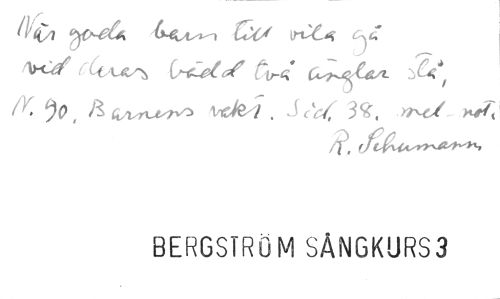 När goda barn till vila gå
vid deras bädd två änglar stå,
N. 90, Barnens vakt. Sid. 38. mel-not.
R. Schumann
BERGSTRÖM SÅNGKURS 3